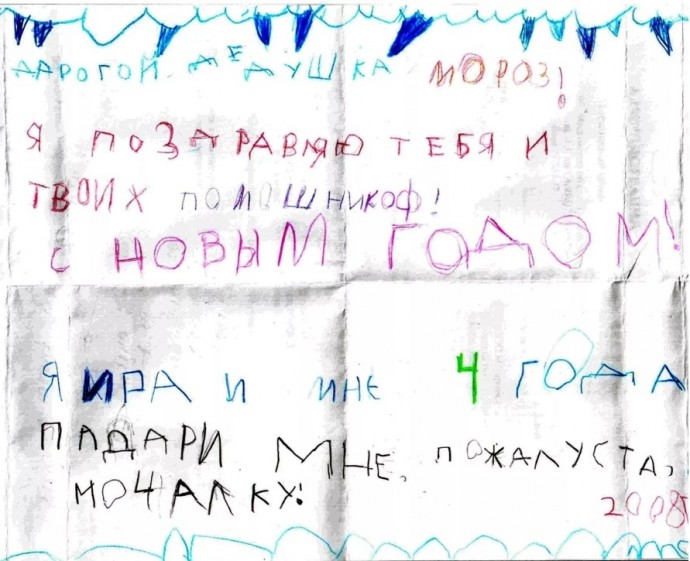 ДАРОГОЙ ДЕДУШКА МОРОЗ!
Я ПОЗДРАВЛЯЮ ТЕБЯ И
ТВОИХ ПОМОШНИКОФ!
С НОВЫМ ГОДОМ!
Я ИРА И МНЕ 4 ГОДА
ПАДАРИ МНЕ, ПОЖАЛУСТА,
МОЧАЛКУ!
2008